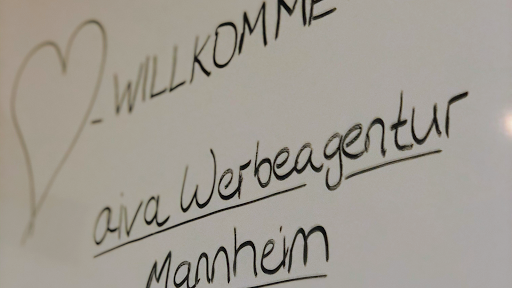 -WILLKOMME
aiva Werbeagentur
Mannheim